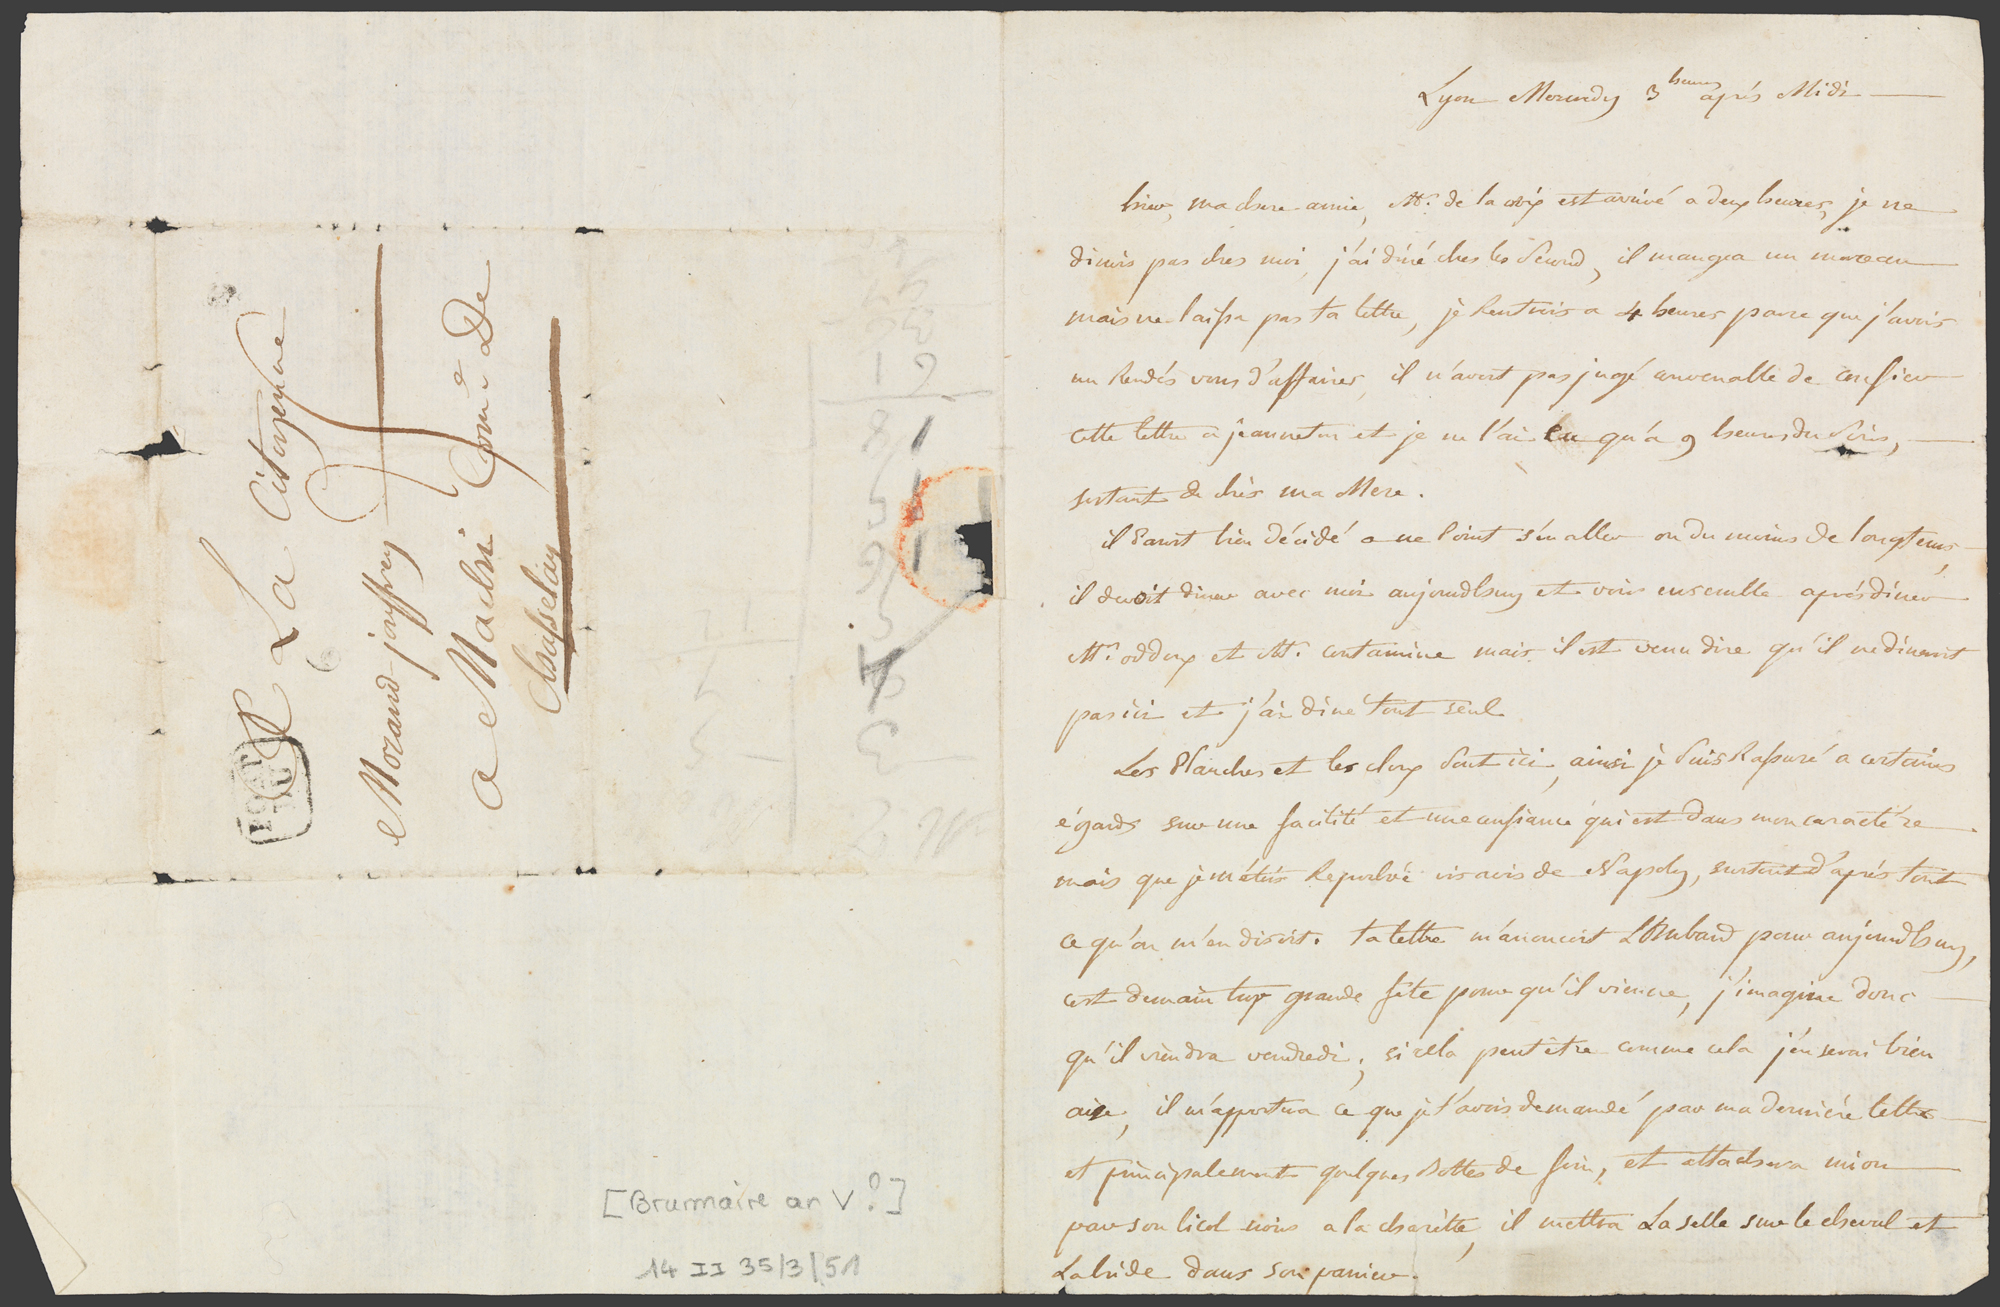 La Citoyenne
Morand jouffrey
a Machi Comne De
Chasselay
6
PORT
PAYÉ
[Brumaire an V?]
14 II 35/3/51
Lyon Mercredy 3 heures après Midi
hier, ma chere amie, Mr. de la croix est arrivé a deux heures, je ne
dinois pas ches moi, j'ai diné ches les Second, il mangea un morceau
mais ne laissa pas ta lettre, je Rentrois a 4 heures parce que j'avois
un Rendés vous d'affaires, il n'avoit pas jugé convenable de confier
cette lettre a jeanneton et je ne l'ai eu qu'a 9 heures du Soir,
sortant de chès ma Mere.
il Paroit bien décidé a ne Point s'en aller ou du moins de longtems,
il devoit diner avec moi aujourdhuy et voir ensemble après diner
Mr. oddoux et Mr. contamine mais il est venu dire qu'il ne dineroit
pas ici et j'ai diné tout seul
Les Planches et les cloux Sont ici, ainsi je Suis Rassuré a certains
égards sur une facilité et une confiance qui est dans mon caractére
mais que je m'étois Reproché vis avis de Napoly, surtout d'après tout
ce qu'on m'en disoit. ta lettre m'anoncoit Lombard pour aujourdhuy,
cest demain trop grande fête pour qu'il vienne, j'imagine donc
qu'il viendra vendredi; si cela peut être comme cela j'en serai bien
aise, il m'apportera ce que je t'avois demandé par ma derniére lettre
et principalement quelques Bottes de foin, et attachera mion
par son licol noir a la charètte, il mettra La selle sur le cheval et
La bride dans son panier.